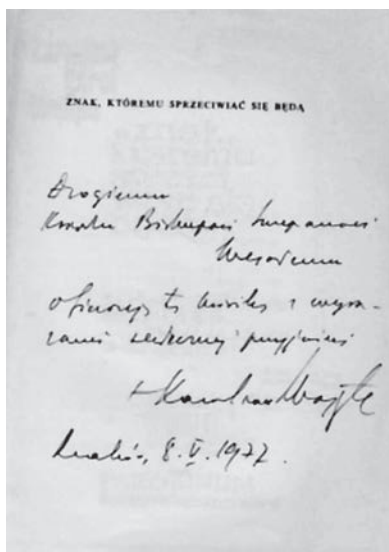 ZNAK, KTÓREMU SPRZECIWIAĆ SIĘ BĘDĄ
Drogiemu
Księdzu Biskupowi Szczepanowi
Wesołemu
ofiaruję tę książkę z wyra-
zami serdecznej przyjaźni
+ Karol Wojtyła
Kraków, 8.V.1977.